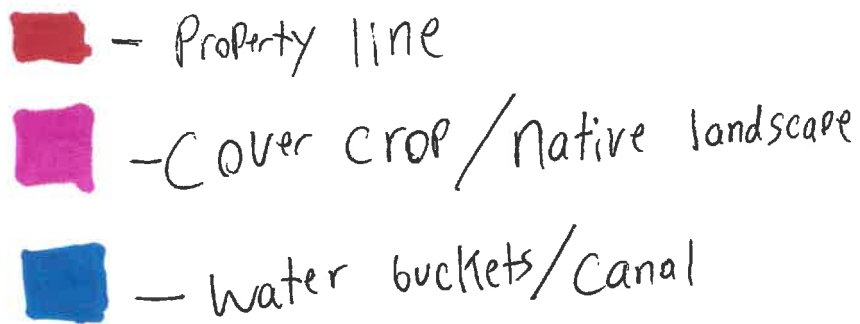 - Property line
- Cover crop/native landscape
- Water buckets/canal